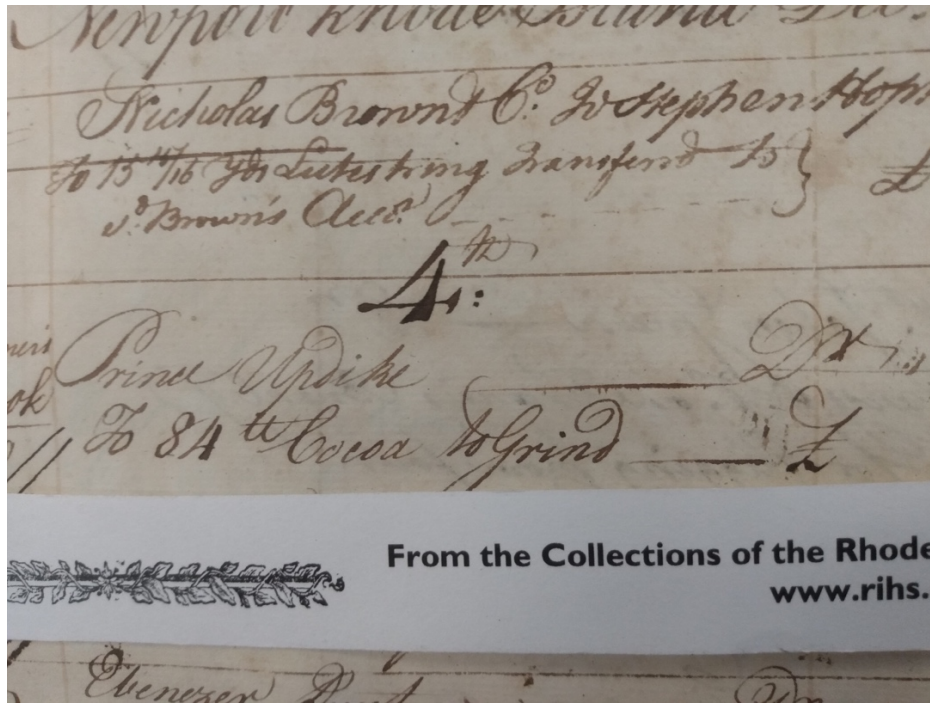 Newport Rhode Island
Nicholas Brown & Co. To Stephen Hop
To 15 11/16 Yds Lutestring Transferd to
sd. Brown's Acco.
4th:
Prince Updike Dr
ok
To 84 tt Cocoa to Grind £
From the Collections of the Rhode
www.rihs.
Ebenezer